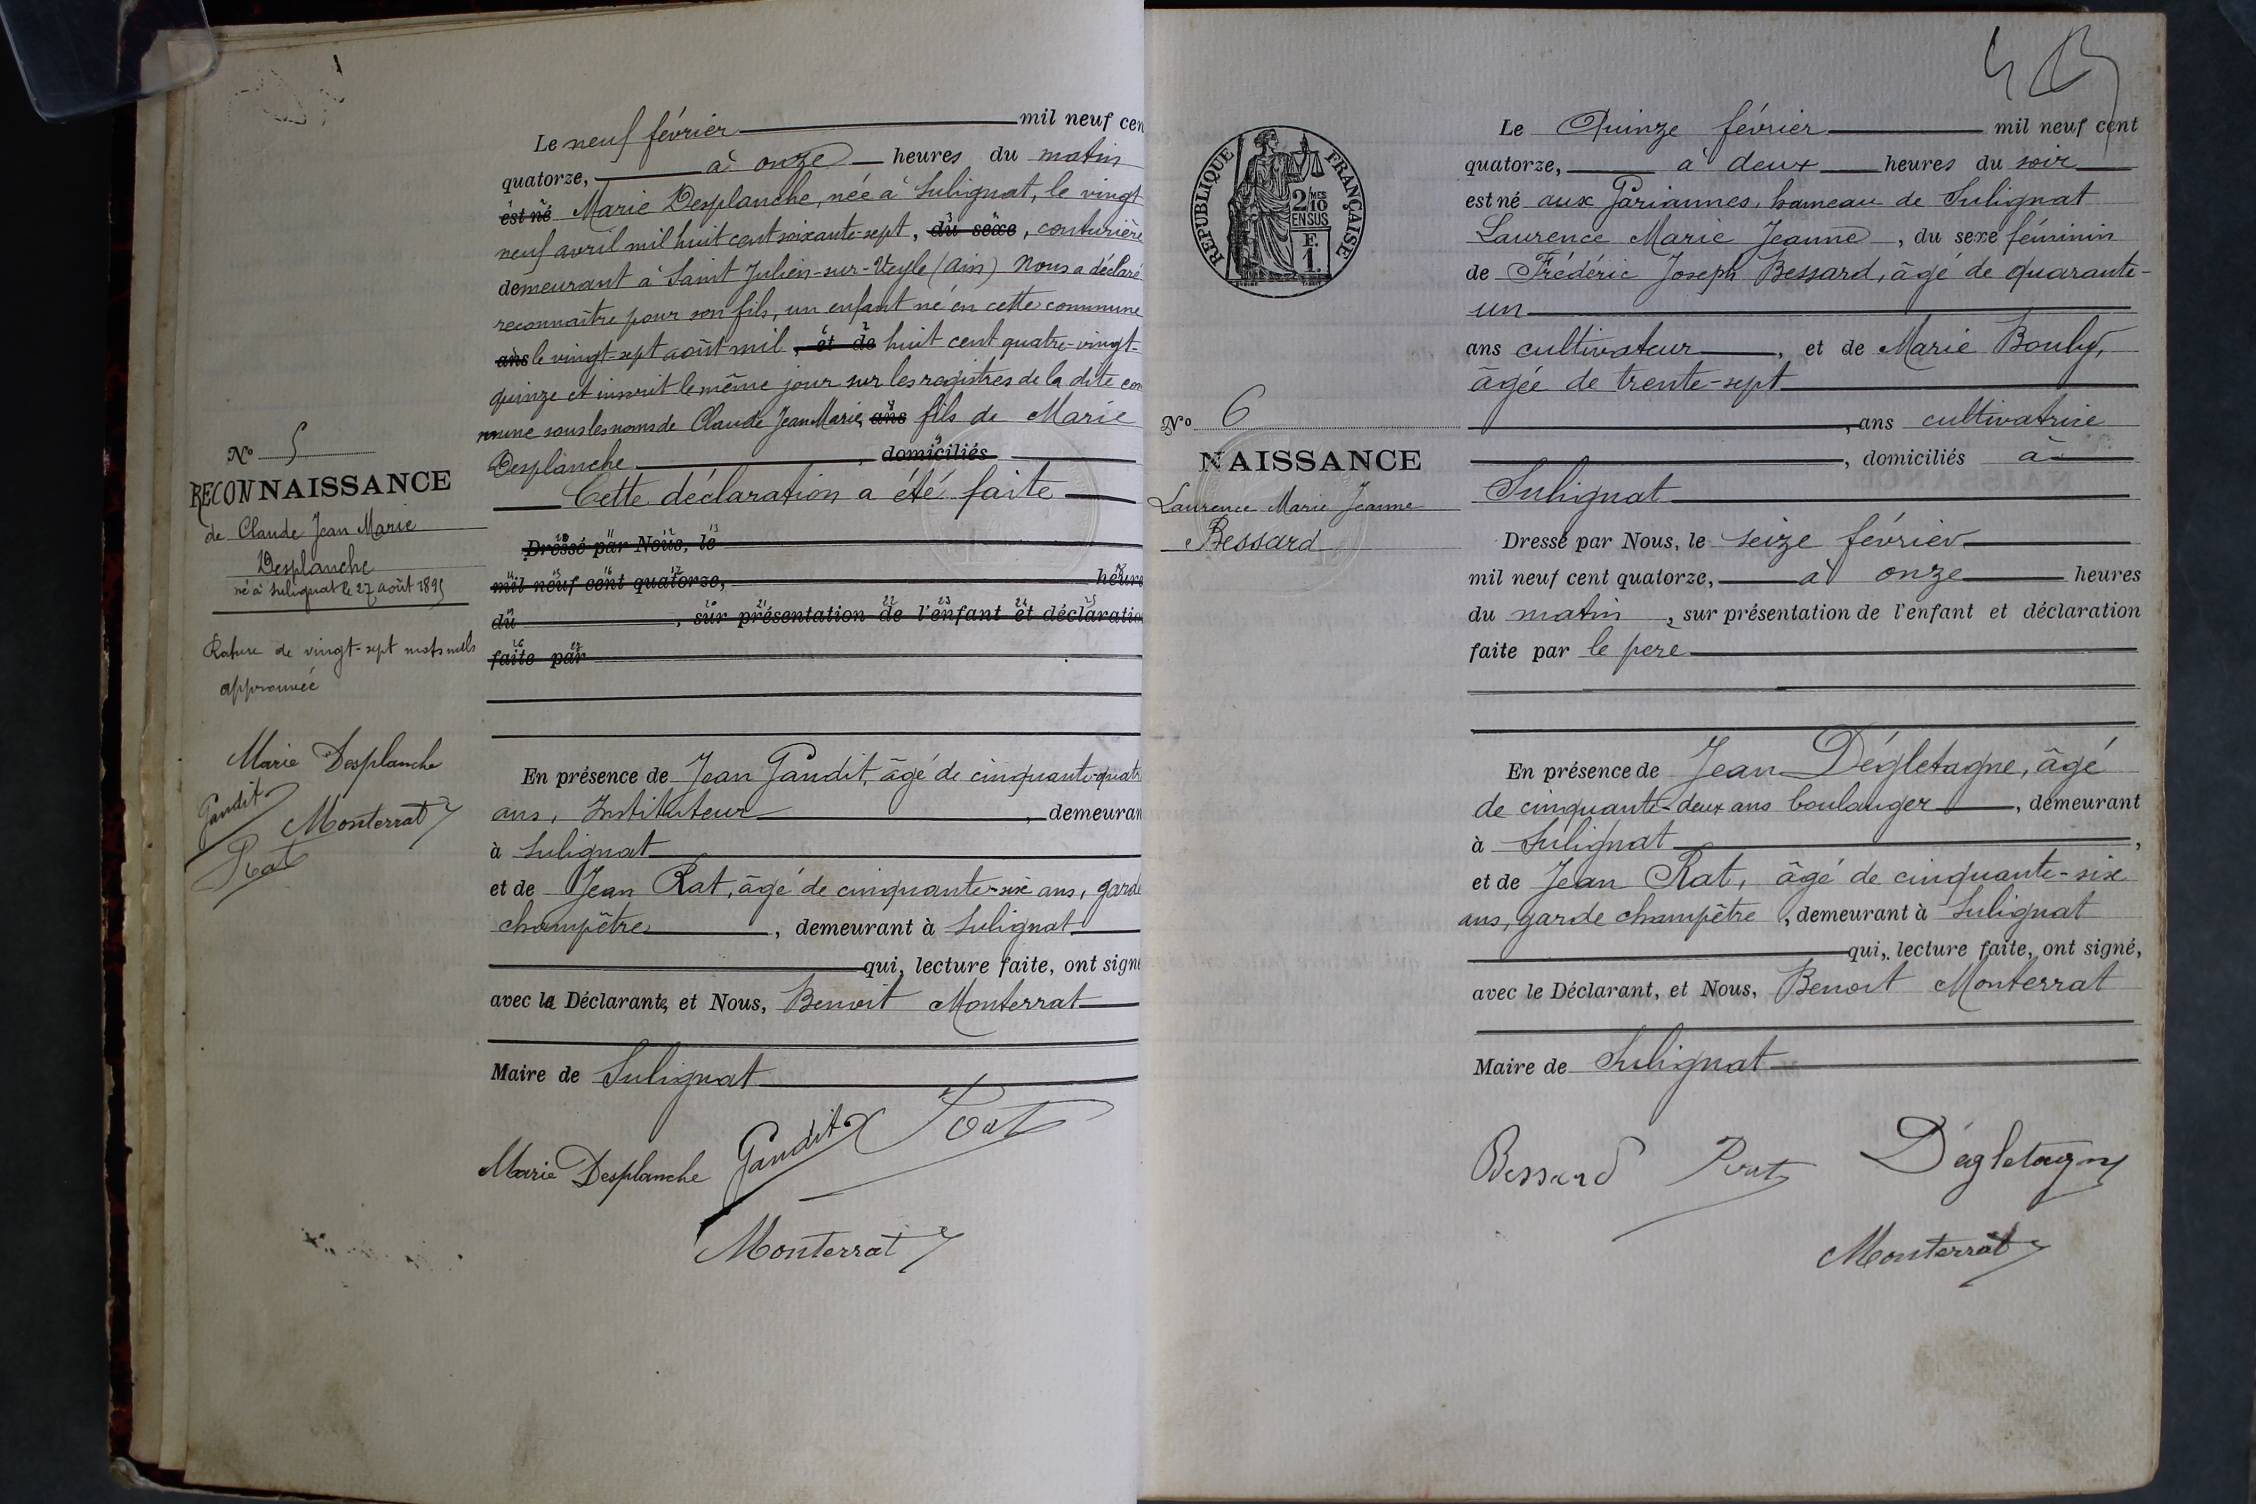 Le neuf février mil neuf cen
quatorze, à onze heures du matin
est né Marie Desplanche, née à Sulignat, le vingt
neuf avril mil huit cent soixante-sept, du sexe, couturière
demeurant à Saint Julien-sur-Veyle (Ain) Nous a déclaré
reconnaître pour son fils, un enfant né en cette commune
ans le vingt-sept août mil, et de huit cent quatre-vingt-
quinze et inscrit le même jour sur les registres de la dite com
mune sous les noms de Claude Jean Marie, ans fils de Marie
Desplanche, domiciliés
Cette déclaration a été faite
Dressé par Nous, le
mil neuf cent quatorze, heure
du, sur présentation de l'enfant et déclaratio
faite par
En présence de Jean Gandit, âgé de cinquante-quatr
ans, Instituteur, demeuran
à Sulignat
et de Jean Rat, âgé de cinquante-six ans, garde
champêtre, demeurant à Sulignat
qui, lecture faite, ont signé
avec la Déclarante, et Nous, Benoit Monterrat
Maire de Sulignat
Marie Desplanche Gandit Rat
Monterrat
No 5
RECONNAISSANCE
de Claude Jean Marie
Desplanche
né à Sulignat le 27 août 1895
Rature de vingt-sept mots nuls
approuvée
Marie Desplanche
Gandit Monterrat
Rat
RÉPUBLIQUE FRANÇAISE
2/10 MES
EN SUS
F.
1.
No 6
NAISSANCE
Laurence Marie Jeanne
Bessard
Le Quinze février mil neuf cent
quatorze, à deux heures du soir
est né aux Pariannes, hameau de Sulignat
Laurence Marie Jeanne, du sexe féminin
de Frédéric Joseph Bessard, âgé de quarante-
un
ans cultivateur, et de Marie Bouly,
âgée de trente-sept
, ans cultivatrice
, domiciliés à
Sulignat
Dressé par Nous, le seize février
mil neuf cent quatorze, à onze heures
du matin, sur présentation de l'enfant et déclaration
faite par le père
En présence de Jean Dégletagne, âgé
de cinquante-deux ans boulanger, demeurant
à Sulignat,
et de Jean Rat, âgé de cinquante-six
ans, garde champêtre, demeurant à Sulignat
qui, lecture faite, ont signé,
avec le Déclarant, et Nous, Benoit Monterrat
Maire de Sulignat
Bessard Rat Dégletagne
Monterrat